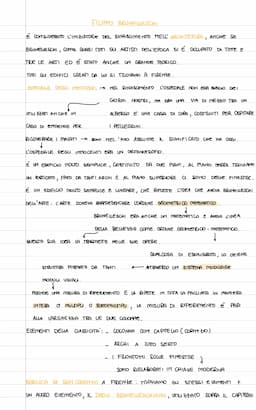 FILIPPO BRUNELLESCHI
È CONSIDERATO L'INIZIATORE DEL RINASCIMENTO NELL'ARCHITETTURA, ANCHE SE
BRUNELLESCHI, COME QUASI TUTTI GLI ARTISTI DELL'EPOCA SI È OCCUPATO DI TUTTE E
TRE LE ARTI ED È STATO ANCHE UN GRANDE TEORICO.
TUTTI GLI EDIFICI CREATI DA LUI SI TROVANO A FIRENZE.
OSPEDALE DEGLI INNOCENTI → NEL RINASCIMENTO L'OSPEDALE NON ERA QUELLO DEI
GIORNI NOSTRI, MA ERA UNA VIA DI MEZZO TRA UN
ALBERGO E UNA CASA DI CURA, COSTRUITI PER OSPITARE
CASO DI EPIDEMIE PER I PELLEGRINI.
RICOVERARE I MALATI → SOLO NEL ASSUME IL SIGNIFICATO CHE HA OGGI
L'OSPEDALE DEGLI INNOCENTI ERA UN ORFANOTROFIO.
È UN EDIFICIO MOLTO SEMPLICE, COSTITUITO DA DUE PIANI, AL PIANO TERRA TROVIAMO
UN PORTICATO, FATTO DA TANTI ARCHI E AL PIANO SUPERIORE CI SONO DELLE FINESTRE.
È UN EDIFICIO MOLTO SEMPLICE E LINEARE, CHE RIFLETTE L'IDEA CHE AVEVA BRUNELLESCHI
DELL'ARTE: L'ARTE DOVEVA RAPPRESENTARE L'ORDINE GEOMETRICO MATEMATICO.
BRUNELLESCHI ERA ANCHE UN MATEMATICO E AVEVA L'IDEA
DELLA BELLEZZA COME ORDINE GEOMETRICO - MATEMATICO.
QUESTA SUA IDEA LA TRASMETTE NELLE SUE OPERE
QUALCOSA DI EQUILIBRATO, LO OTTIENE
STRUTTURA FORMATA DA TANTI ← ATTRAVERSO UN SISTEMA MODULARE
MODULI UGUALI.
PRENDE UNA MISURA DI RIFERIMENTO E LA RIPETE IN TUTTA LA FACCIATA IN MANIERA
INTERA O MULTIPLI O SOTTOMULTIPLI, LA MISURA DI RIFERIMENTO È PARI
ALLA LARGHEZZA TRA LE DUE COLONNE.
ELEMENTI DELLA CLASSICITÀ: - COLONNA CON CAPITELLO (CORINTIO)
- ARCHI A TUTTO SESTO
- I FRONTONI SULLE FINESTRE
SONO RIELABORATI IN CHIAVE MODERNA
BASILICA DI SAN LORENZO A FIRENZE: TORNANO GLI STESSI ELEMENTI E
UN ALTRO ELEMENTO, IL DADO BRUNELLESCHIANO, UTILIZZATO SOPRA IL CAPITELLO